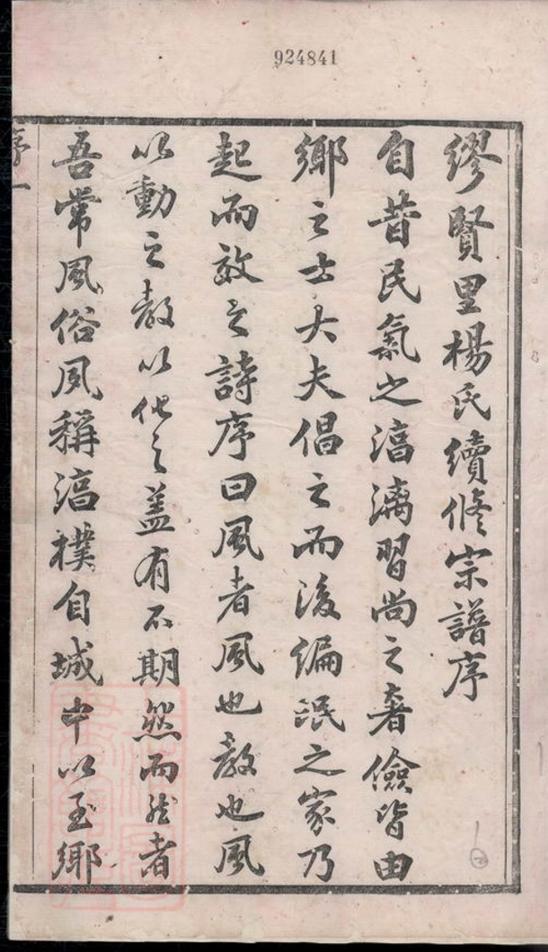 924841
繆賢里楊氏續修宗譜序
自昔民氣之湻漓習尚之奢儉皆由
鄉之士大夫倡之而後編氓之家乃
起而效之詩序曰風者風也教也風
以動之教以化之蓋有不期然而然者
吾常風俗夙稱湻樸自城中以至鄉
序一